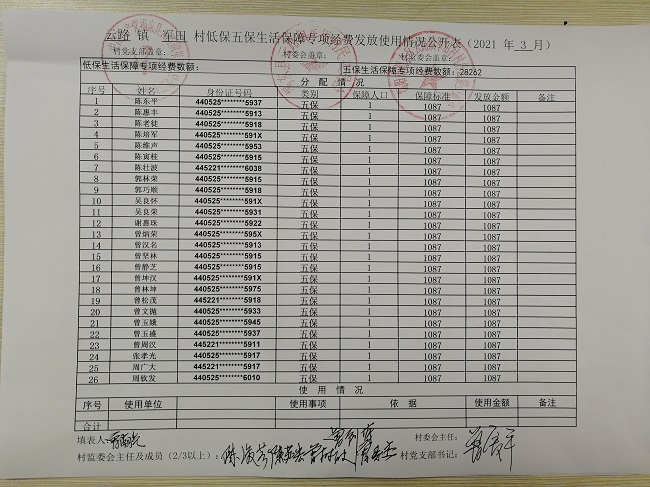 云路 镇 军田 村低保五保生活保障专项经费发放使用情况公开表（2021 年 3 月）
村党支部盖章： 村委会盖章： 村监委会盖章：
低保生活保障专项经费数额： 五保生活保障专项经费数额：28262
分 配 情 况
序号 姓名 身份证号码 类别 保障人口 保障标准 发放金额 备注
1 陈东平 440525********5937 五保 1 1087 1087
2 陈惠丰 440525********5913 五保 1 1087 1087
3 陈老徒 440525********5918 五保 1 1087 1087
4 陈培军 440525********591X 五保 1 1087 1087
5 陈维声 440525********5953 五保 1 1087 1087
6 陈寅桂 440525********5915 五保 1 1087 1087
7 陈壮波 445221********6038 五保 1 1087 1087
8 郭林荣 440525********5915 五保 1 1087 1087
9 郭巧顺 440525********5918 五保 1 1087 1087
10 吴良怀 440525********591X 五保 1 1087 1087
11 吴良荣 440525********5931 五保 1 1087 1087
12 谢惠珠 440525********5922 五保 1 1087 1087
13 曾炳荣 440525********595X 五保 1 1087 1087
14 曾汉名 440525********5913 五保 1 1087 1087
15 曾坚林 440525********5915 五保 1 1087 1087
16 曾静芝 440525********5915 五保 1 1087 1087
17 曾坤汉 440525********591X 五保 1 1087 1087
18 曾林坤 440525********5975 五保 1 1087 1087
19 曾松茂 445221********5918 五保 1 1087 1087
20 曾文抛 440525********5933 五保 1 1087 1087
21 曾玉娥 440525********5945 五保 1 1087 1087
22 曾玉盛 440525********5937 五保 1 1087 1087
23 曾周汉 445221********5911 五保 1 1087 1087
24 张孝光 440525********5917 五保 1 1087 1087
25 周广大 445221********5917 五保 1 1087 1087
26 周钦发 440525********6010 五保 1 1087 1087
使 用 情 况
序号 使用单位 使用事项 依 据 使用金额 备注
合计
填表人： 村委会主任：
村监委会主任及成员（2/3以上）： 村党支部书记：